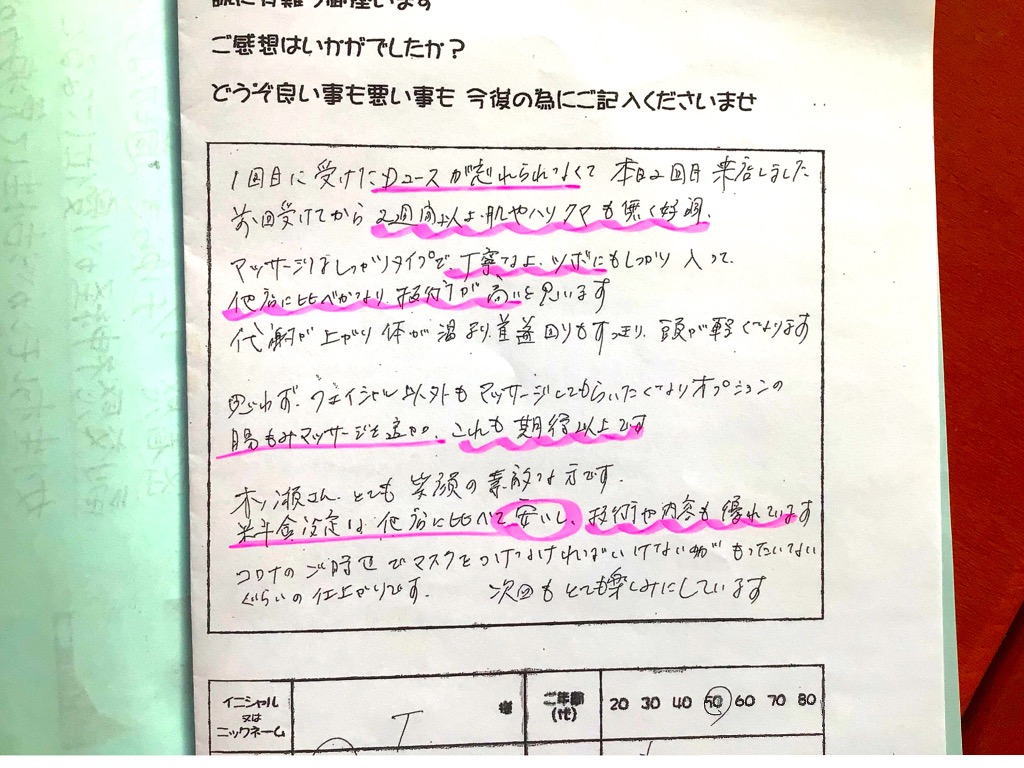 誠に有難う御座います
ご感想はいかがでしたか？
どうぞ良い事も悪い事も 今後の為にご記入くださいませ
1回目に受けたコースが忘れられなくて 本日2回目 来店しました
前回受けてから 2週間以上 肌やハリ クマも無く好調、
マッサージはしっかりタイプで、丁寧なよ、ツボにもしっかり 入って、
他店に比べかなり、技術が高いと思います
代謝が上がり 体が温まり 首 回りもすっきり、頭が軽くなります
思わず、フェイシャル以外も マッサージしてもらいたくなりオプションの
腸もみマッサージを追加、これも 期待以上です
木ノ瀬さん、とても 笑顔の素敵な方です。
料金設定は 他店に比べて 安いし、技術や内容も優れています
コロナのご時世でマスクをつけなければいけないのが もったいない
ぐらいの仕上がりです。 次回も とても楽しみにしています
イニシャル
又は
ニックネーム
T
様
ご年齢
(代)
20 30 40 50 60 70 80